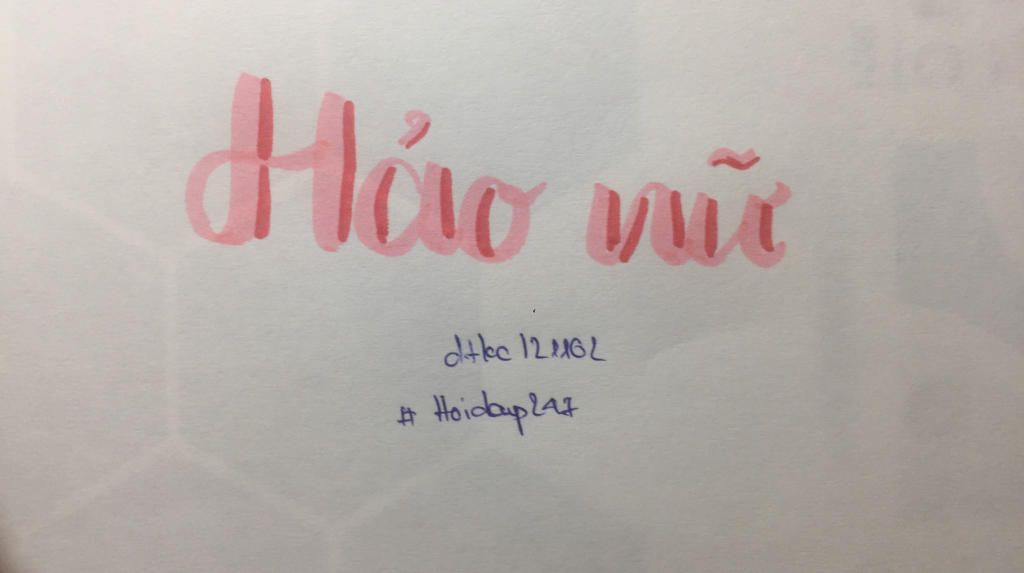 Hảo nữ
dtkc121162
# Hoidap247